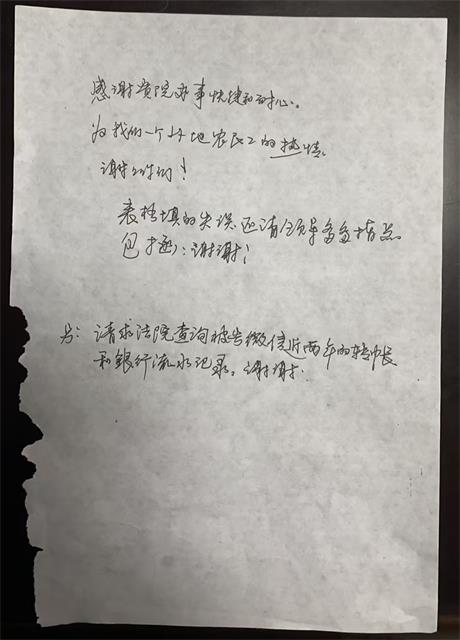 感谢贵院办事快捷和耐心。
为我们一个外地农民工的热情。
谢谢你们！
表格填的失误还请领导多多指点
包 : 谢谢！
另：请求法院查询被告微信近两年的转帐
和银行流水记录。谢谢